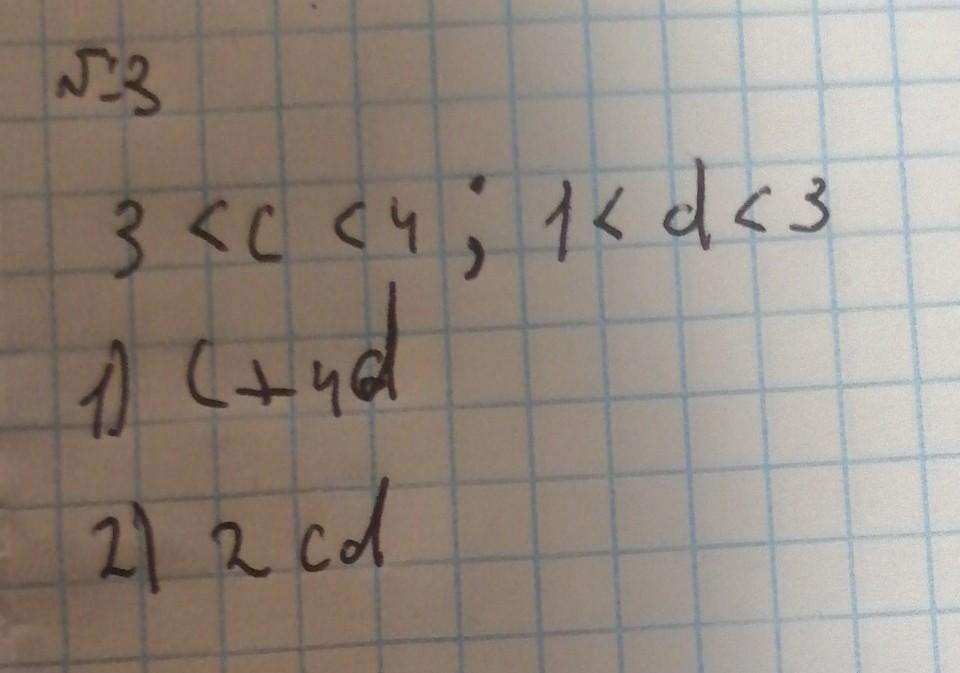 №3
3 < c < 4 ; 1 < d < 3
1) c + 4d
2) 2cd